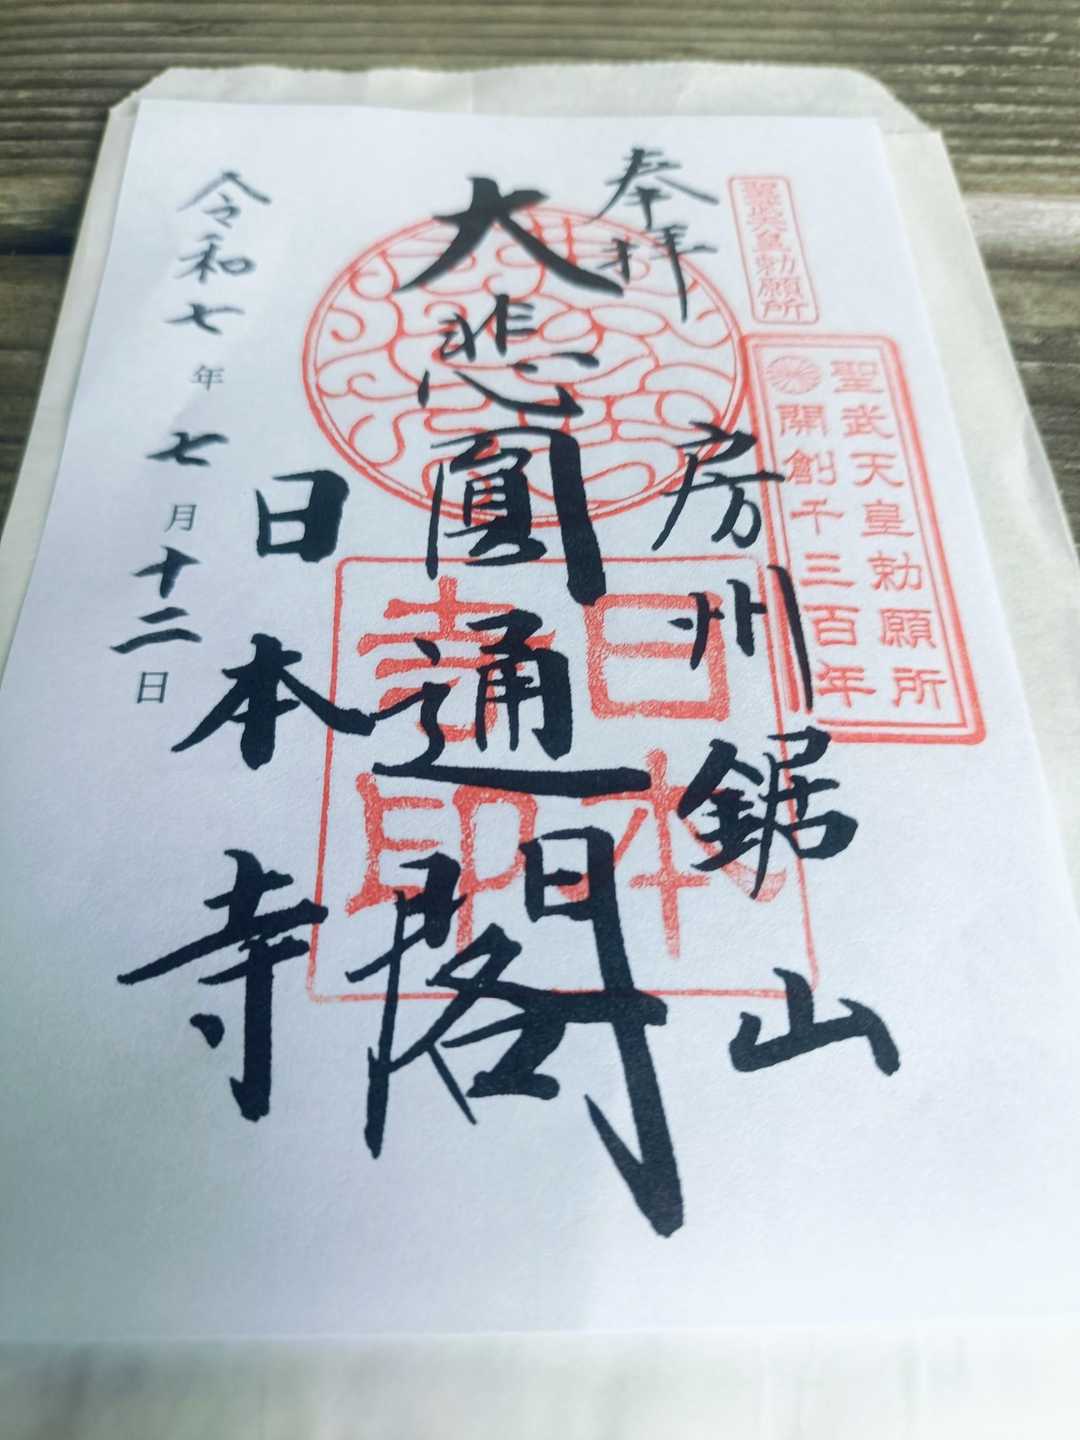 聖武天皇勅願所
聖武天皇勅願所
開創千三百年
奉拝
房州鋸山
大悲圓通閣
日本寺
日本
寺印
令和七年七月十二日